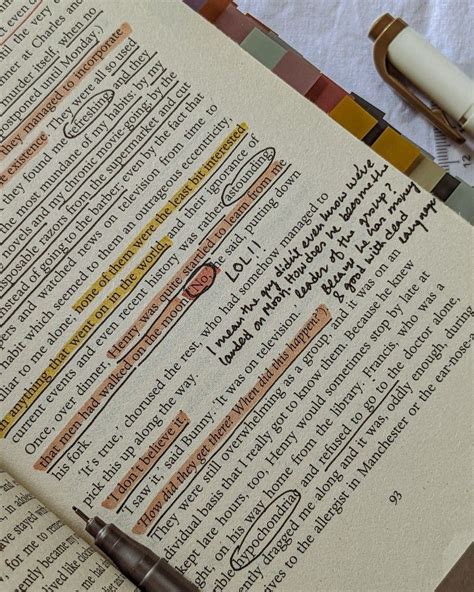 till the very
inner at Charles and
murder itself, when no
postponed until Monday)
they managed to incorporate
existence. They were all so used
they found me refreshing and they
the most mundane of my habits: by my
novels and my chronic movie-going; by the
isposable razors from the supermarket and cut
instead of going to the barber; even by the fact that
pers and watched news on television from time to
habit which seemed to them an outrageous eccentricity,
liar to me alone; none of them were the least bit interested
in anything that went on in the world, and their ignorance of
current events and even recent history was rather astounding.
Once, over dinner, Henry was quite startled to learn from me
that men had walked on the moon. 'No,' he said, putting down
his fork.
'It's true,' chorused the rest, who had somehow managed to
pick this up along the way.
'I don't believe it.'
'I saw it,' said Bunny. 'It was on television.'
'How did they get there? When did this happen?'
They were still overwhelming as a group, and it was on an
individual basis that I really got to know them. Because he knew
kept late hours, too, Henry would sometimes stop by late at
ight, on his way home from the library. Francis, who was a
rible hypochondriac and refused to go to the doctor alone,
ently dragged me along and it was, oddly enough, during
rives to the allergist in Manchester or the ear-nose-
93
LOL!!
I mean the guy didn't even know we've
landed on Moon. How does he become the
leader of the group?
Because he has money
& good with dead